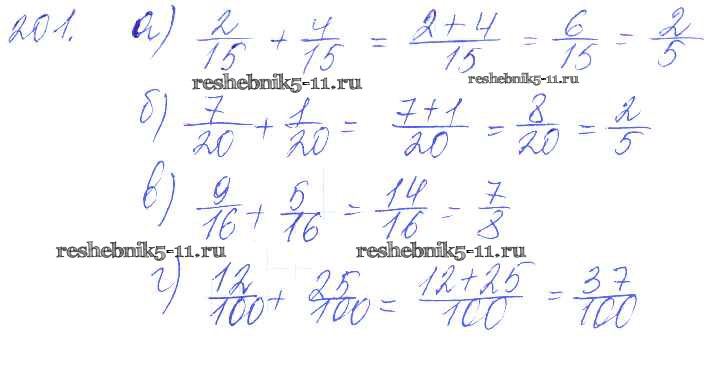 201. а) 2/15 + 4/15 = 2+4/15 = 6/15 = 2/5
reshebnik5-11.ru reshebnik5-11.ru
б) 7/20 + 1/20 = 7+1/20 = 8/20 = 2/5
в) 9/16 + 5/16 = 14/16 = 7/8
reshebnik5-11.ru reshebnik5-11.ru
г) 12/100 + 25/100 = 12+25/100 = 37/100